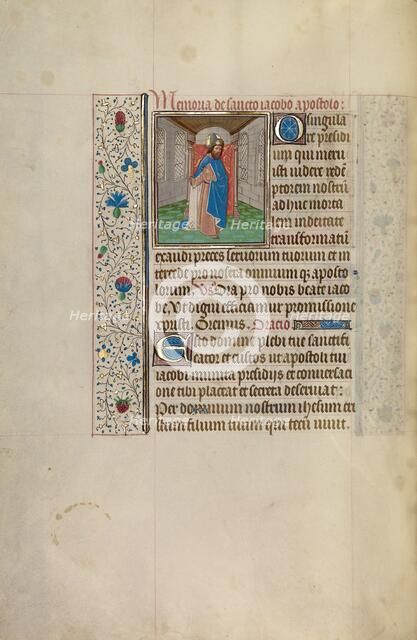 Memoria de sancto iacobo apostolo:
O singula
re presidi
um qui meru
isti videre redē
ptorem nostrū
adhuc morta
lem in deitate
transformatū
exaudi preces servorum tuorum et in
tercede pro nostra omnium q; aposto
lorum Ora pro nobis beate iaco
be. Ut digni efficiamur promissione
xpristi. Oremus. Oracio
Esto domine plebi tue sanctifi
cator et custos ut apostoli tui
iacobi munita presidiis et conversaci
one tibi placeat et secura deserviat:
Per dominum nostrum ihesum cri
stum filium tuum qui tecū vivit.
Heritage
Heritage
Heritage
Heritage
Heritage